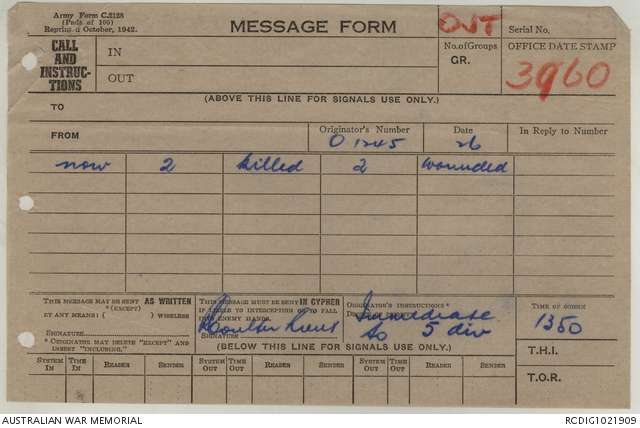 Army Form C.2128
(Pads of 100)
Reprint 4 October, 1942.
MESSAGE FORM
OUT
Serial No.
CALL AND INSTRUC- TIONS
IN
OUT
No. of Groups
GR.
OFFICE DATE STAMP
3960
(ABOVE THIS LINE FOR SIGNALS USE ONLY.)
TO
FROM
Originator's Number
O 1245
Date
26
In Reply to Number
now 2 killed 2 wounded
THIS MESSAGE MAY BE SENT AS WRITTEN
(EXCEPT)
BY ANY MEANS: ( ) WIRELESS
SIGNATURE
* ORIGINATOR MAY DELETE "EXCEPT" AND
INSERT "INCLUDING."
THIS MESSAGE MUST BE SENT IN CYPHER
IF LIKELY TO INTERCEPTION OR TO FALL
INTO ENEMY HANDS.
SIGNATURE
ORIGINATOR'S INSTRUCTIONS*
Immediate
to 5 div
TIME OF ORIGIN
1350
T.H.I.
T.O.R.
(BELOW THIS LINE FOR SIGNALS USE ONLY.)
SYSTEM IN TIME IN READER SENDER SYSTEM OUT TIME OUT READER SENDER SYSTEM OUT TIME OUT READER SENDER
AUSTRALIAN WAR MEMORIAL
RCDIG1021909